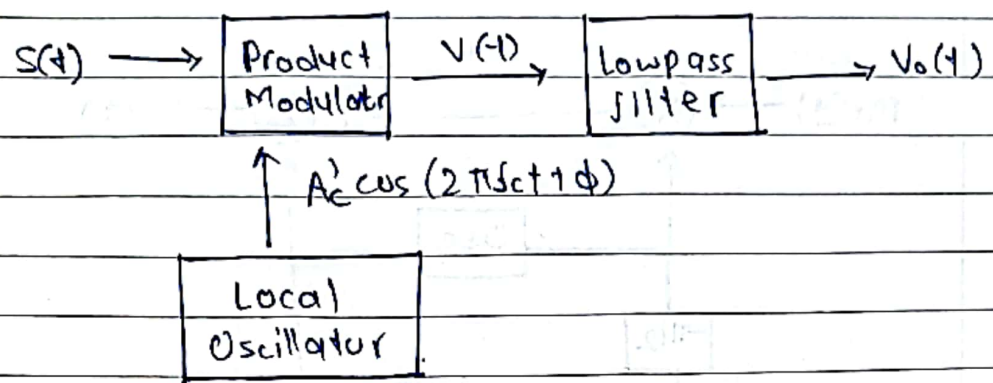 S(t)
Product
Modulatr
V(t)
Lowpass
filter
Vo(t)
Ac' cos (2πfct+φ)
Local
Oscillator